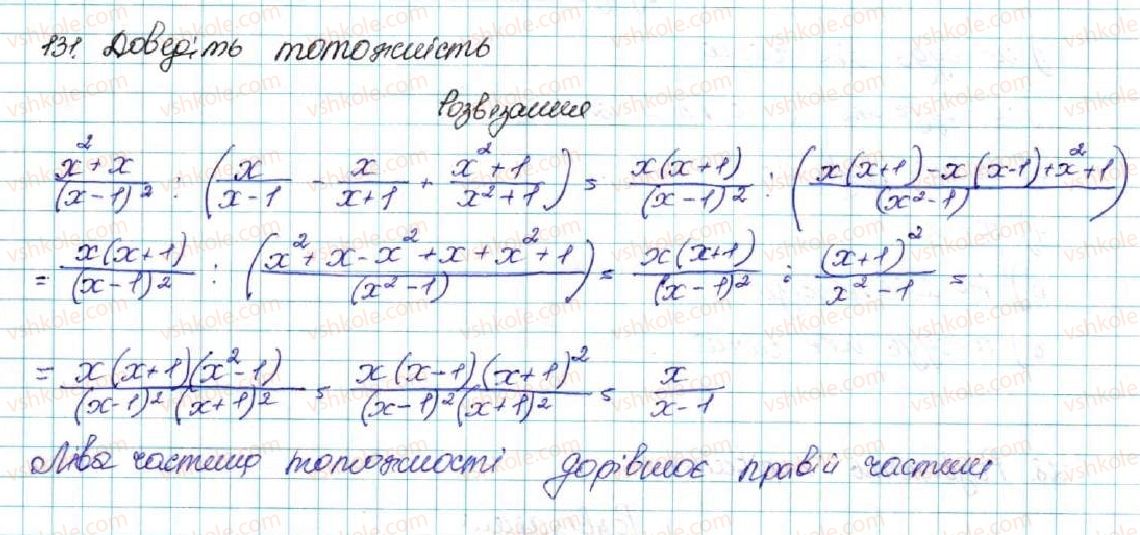 131. Доведіть тотожність
Розв'язання
(x² + x)/(x-1)² : (x/(x-1) - x/(x+1) + (x²+1)/(x²+1)) = x(x+1)/(x-1)² : ((x(x+1)-x(x-1)+x²+1)/(x²-1))
= x(x+1)/(x-1)² : ((x²+x-x²+x+x²+1)/(x²-1)) = x(x+1)/(x-1)² : (x+1)²/(x²-1) =
= x(x+1)(x²-1)/((x-1)²(x+1)²) = x(x-1)(x+1)²/((x-1)²(x+1)²) = x/(x-1)
Ліва частина тотожності дорівнює правій частині